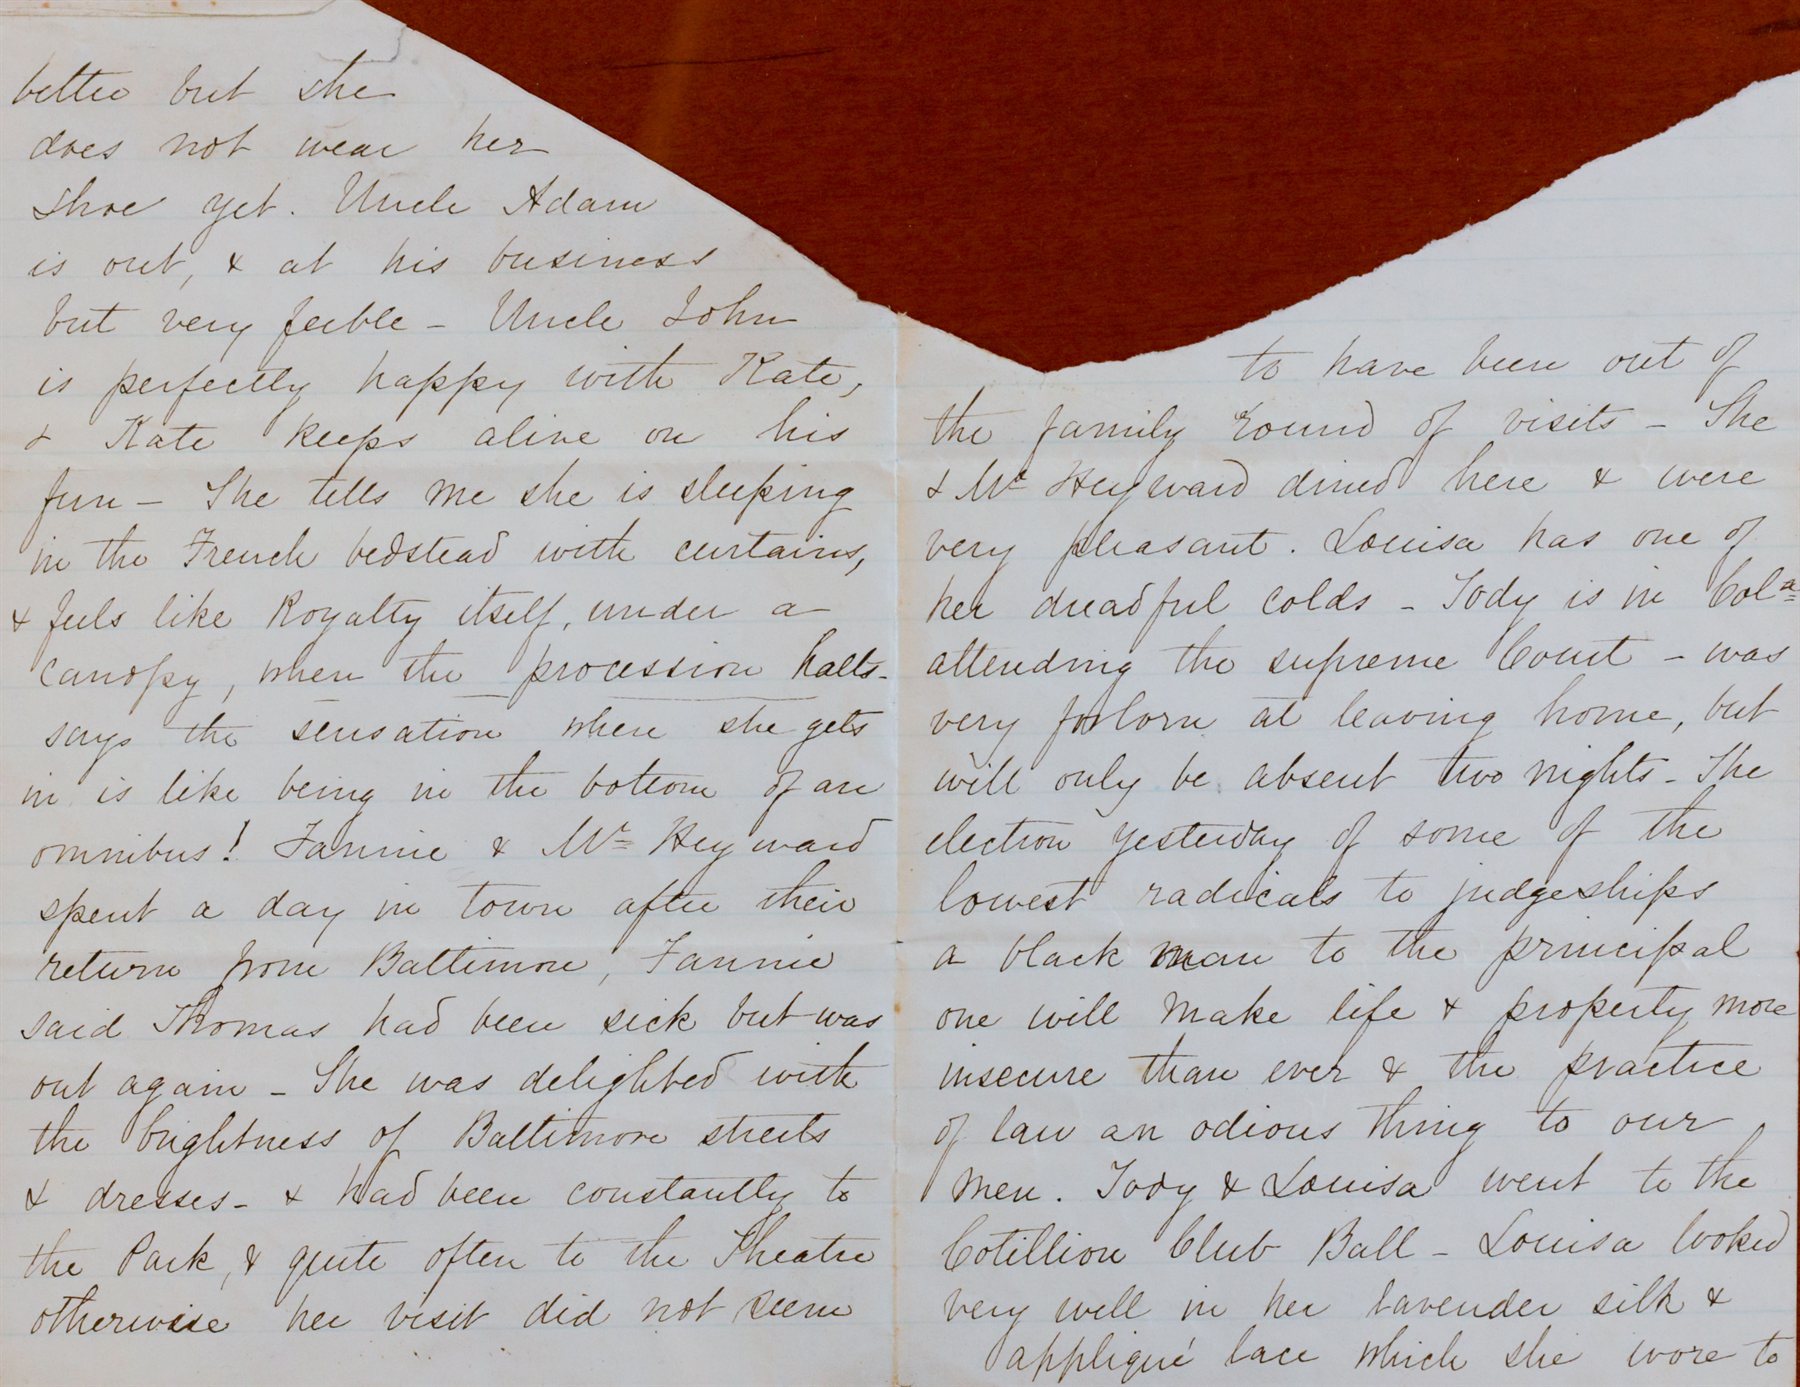 better but she
does not wear her
shoe yet. Uncle Adam
is out, & at his business
but very feeble – Uncle John
is perfectly happy with Kate,
& Kate keeps alive on his
fun – She tells me she is sleeping
in the French bedstead with curtains,
& feels like Royalty itself, under a
canopy, when the procession halts –
says the sensation when she gets
in is like being in the bottom of an
omnibus! Fannie & Mr Heyward
spent a day in town after their
return from Baltimore, Fannie
said Thomas had been sick but was
out again – She was delighted with
the brightness of Baltimore streets
& dresses – & had been constantly to
the Park, & quite often to the Theatre
otherwise her visit did not seem
to have been out of
the family round of visits – She
& Mr Heyward dined here & were
very pleasant. Louisa has one of
her dreadful colds – Tody is in Cola
attending the supreme Court – was
very forlorn at leaving home, but
will only be absent two nights – The
election yesterday of some of the
lowest radicals to judgeships
a black man to the principal
one will make life & property more
insecure than ever & the practice
of law an odious thing to our
men. Tody & Louisa went to the
Cotillion Club Ball – Louisa looked
very well in her lavender silk &
appliqué lace which she wore to